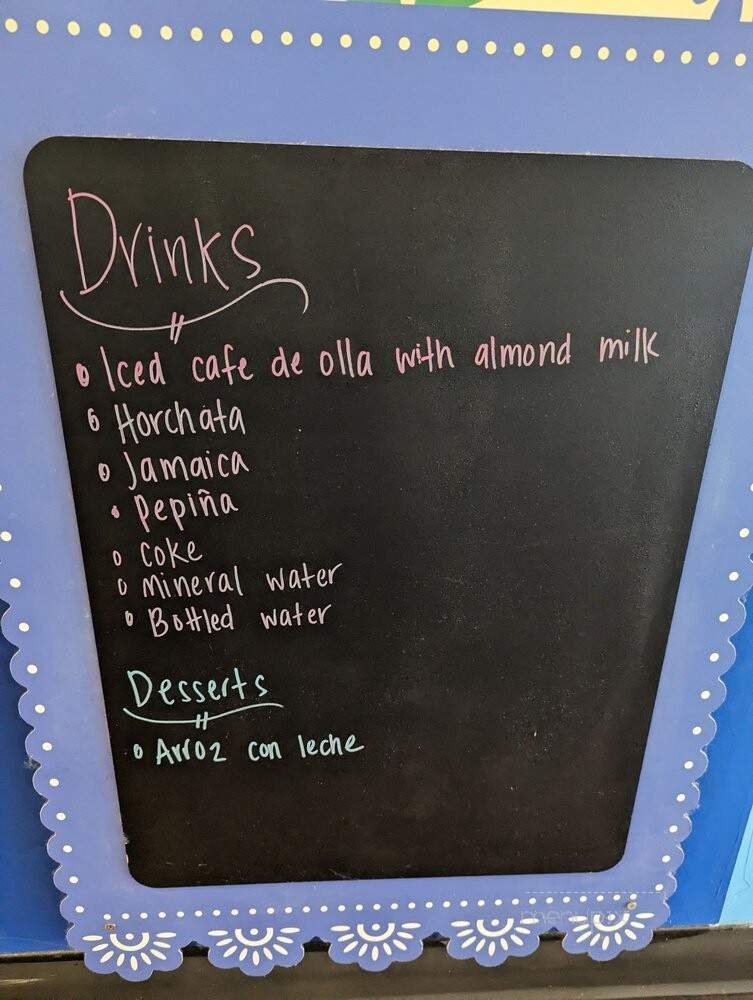 Drinks
Iced cafe de olla with almond milk
Horchata
Jamaica
Pepiña
Coke
Mineral water
Bottled water
Desserts
Arroz con leche